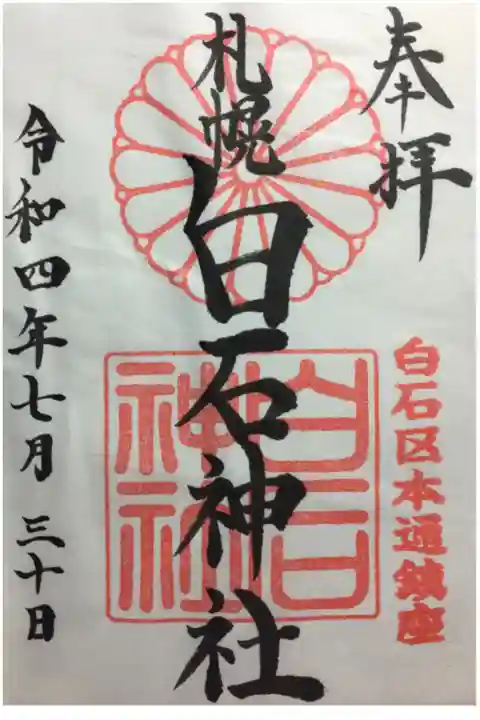 奉拝
白石区本通鎮座
札幌
白石神社
白石
神社
令和四年七月三十日